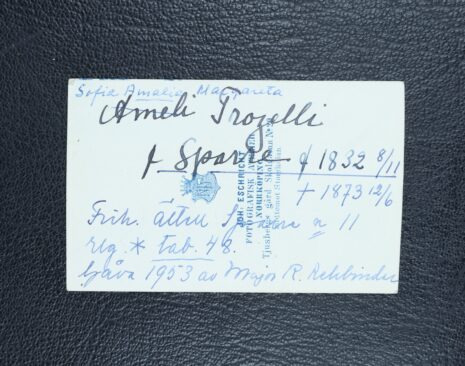 Sofia Amalia Margareta
Ameli Trozelli
f Sparre f 1832 8/11
+ 1873 12/6
Frih. ätten Sparre n 11
tab. 48.
gåva 1953 av Major R. Rehbinder
JOH. ESCHRICHT
FOTOGRAFISK ATELIER
NORRKÖPING
Tjusbergs gård Skolgatan